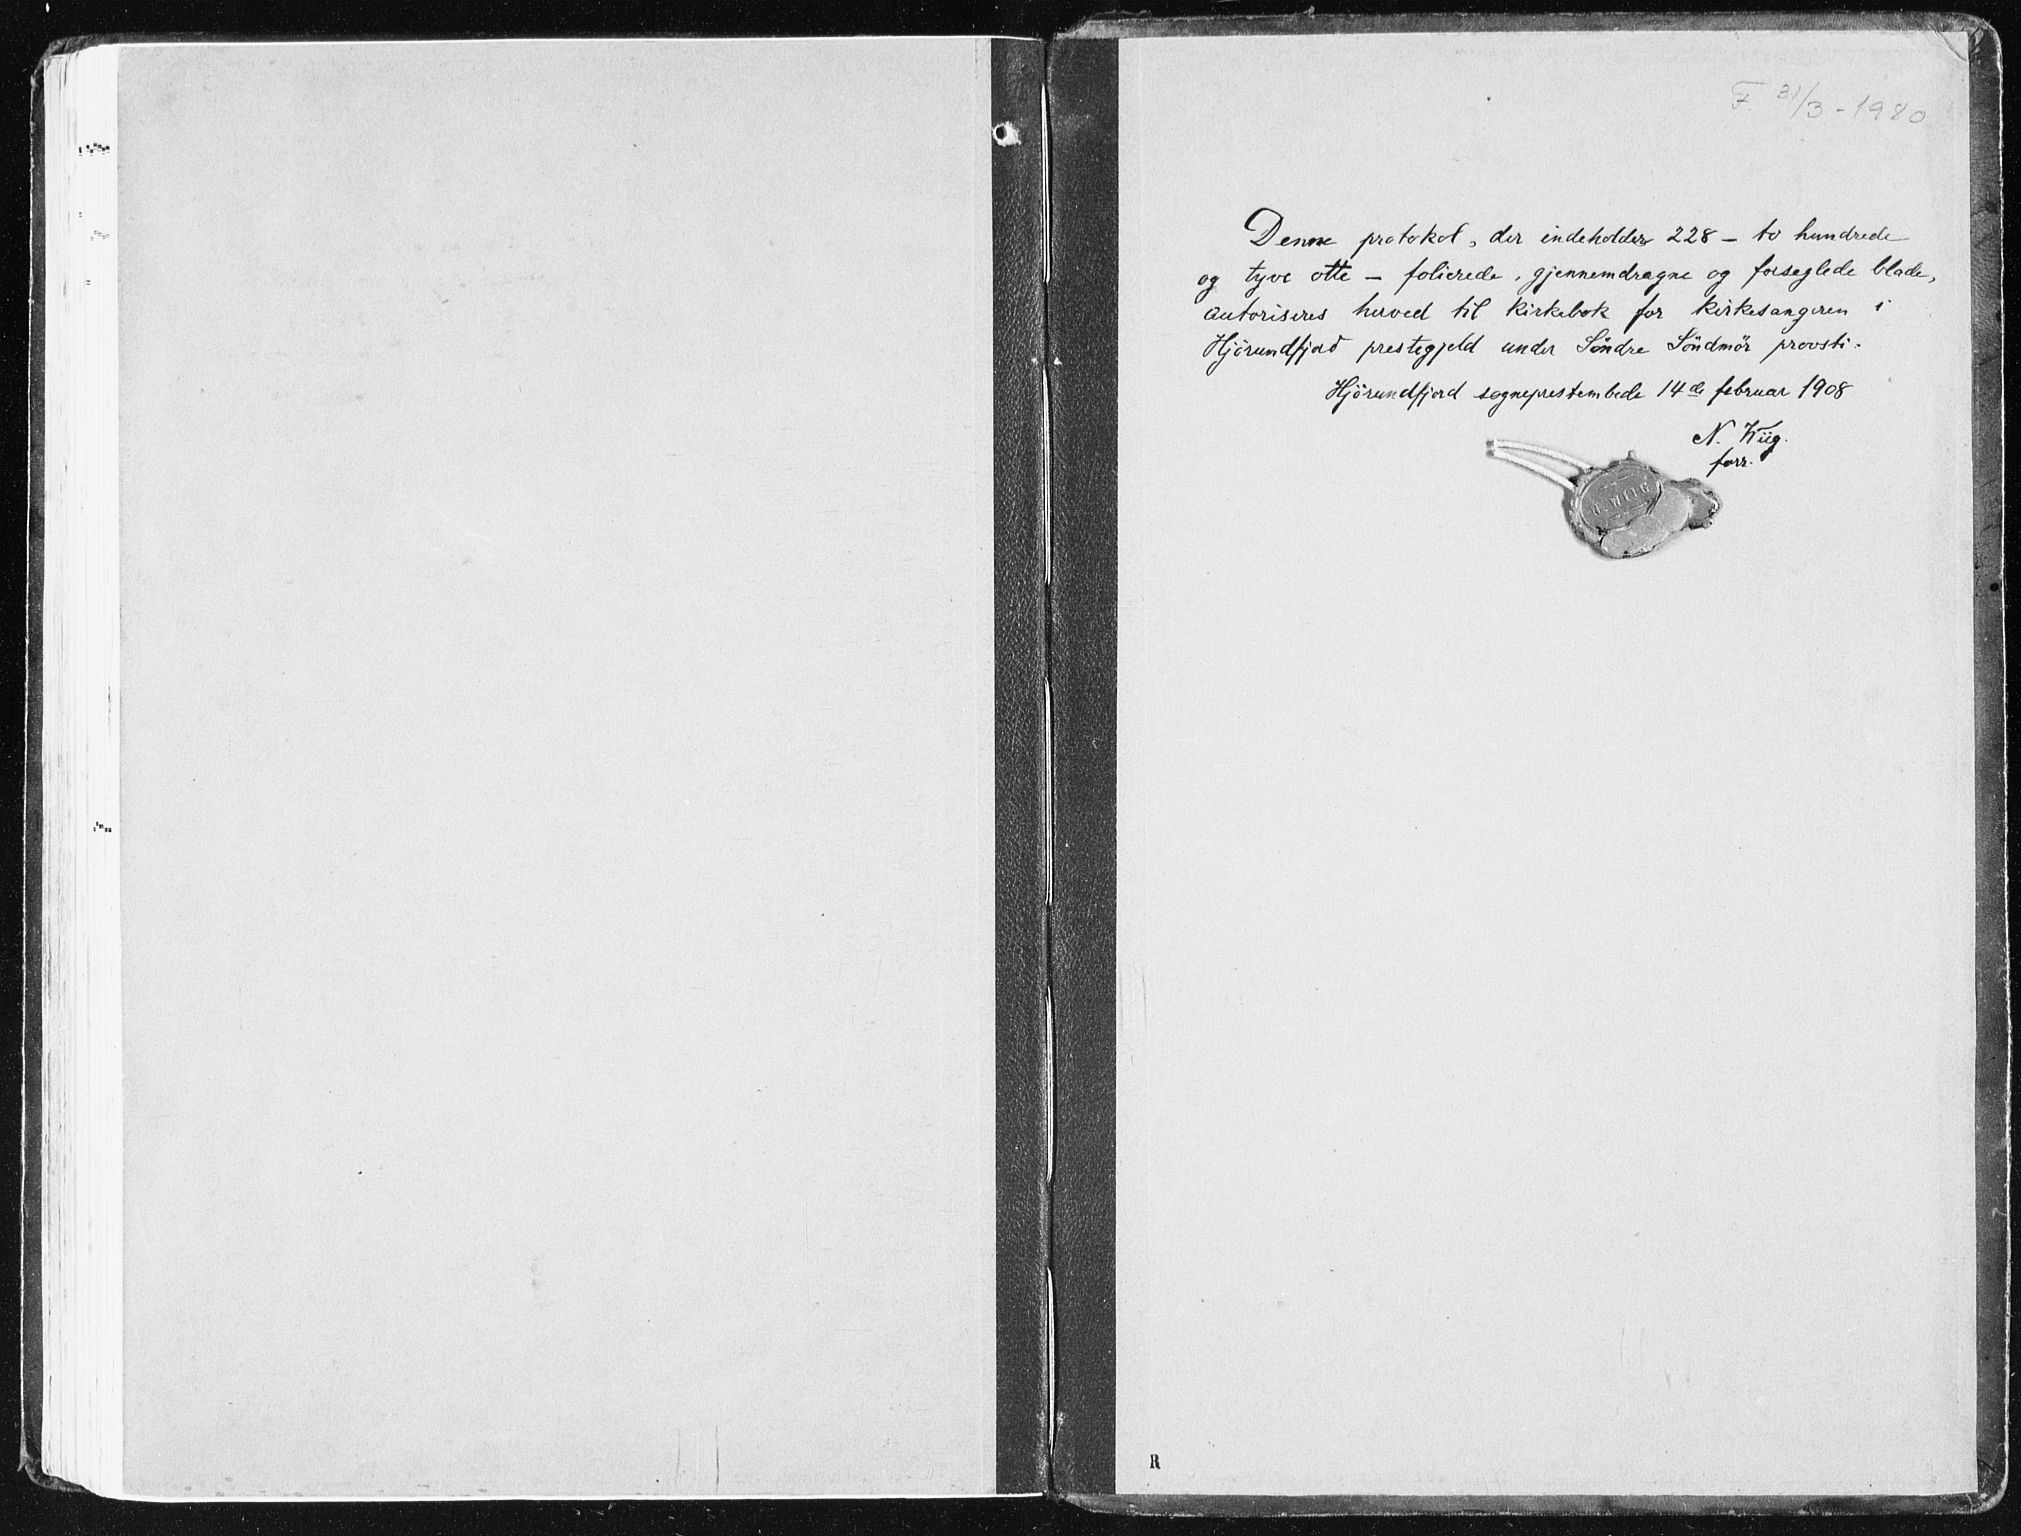 F. 31/3 - 1980
Denne protokol, der indeholder 228 – to hundrede
og tyve otte – folierede, gjennemdragne og forseglede blade,
autoriseres herved til kirkebok for kirkesangeren i
Hjörundfjord prestegjeld under Söndre Söndmör provsti.
Hjörundfjord sogneprestembede 14de februar 1908
N. Wiig.
forr.
N. WIIG
R